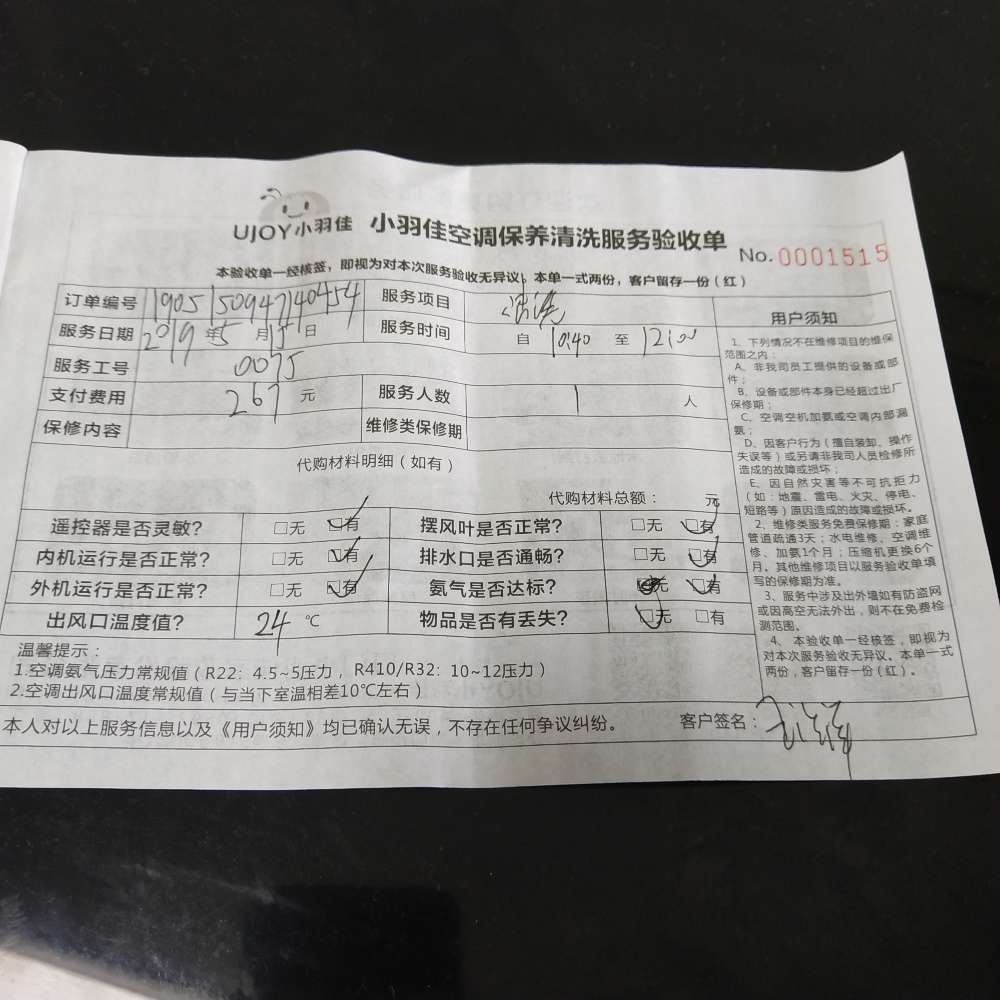 UJOY小羽佳 小羽佳空调保养清洗服务验收单 No.0001515
本验收单一经核签,即视为对本次服务验收无异议,本单一式两份,客户留存一份(红)
订单编号 1905150947140454 服务项目 清洗
服务日期 2019年5月15日 服务时间 自 10:40 至 12:00
服务工号 0075
支付费用 267 元 服务人数 1 人
保修内容 维修类保修期
代购材料明细(如有)
代购材料总额: 元
遥控器是否灵敏? □无 ☑有 摆风叶是否正常? □无 ☑有
内机运行是否正常? □无 ☑有 排水口是否通畅? □无 ☑有
外机运行是否正常? □无 ☑有 氨气是否达标? 无 ☑有
出风口温度值? 24 ℃ 物品是否有丢失? ☑无 □有
温馨提示:
1.空调氨气压力常规值(R22:4.5~5压力,R410/R32:10~12压力)
2.空调出风口温度常规值(与当下室温相差10℃左右)
本人对以上服务信息以及《用户须知》均已确认无误,不存在任何争议纠纷。 客户签名:
用户须知
1、下列情况不在维修项目的维保
范围之内:
A、非我司员工提供的设备或部
件;
B、设备或部件本身已经超过出厂
保修期;
C、空调空机加氨或空调内部漏
氨;
D、因客户行为(擅自装卸、操作
失误等)或另请非我司人员检修所
造成的故障或损坏;
E、因自然灾害等不可抗拒力
(如:地震、雷电、火灾、停电、
短路等)原因造成的故障或损坏。
2、维修类服务免费保修期:家庭
管道疏通3天;水电维修、空调维
修、加氨1个月;压缩机更换6个
月。其他维修项目以服务验收单填
写的保修期为准。
3、服务中涉及出外墙如有防盗网
或因高空无法外出,则不在免费检
测范围。
4、本验收单一经核签,即视为
对本次服务验收无异议。本单一式
两份,客户留存一份(红)。